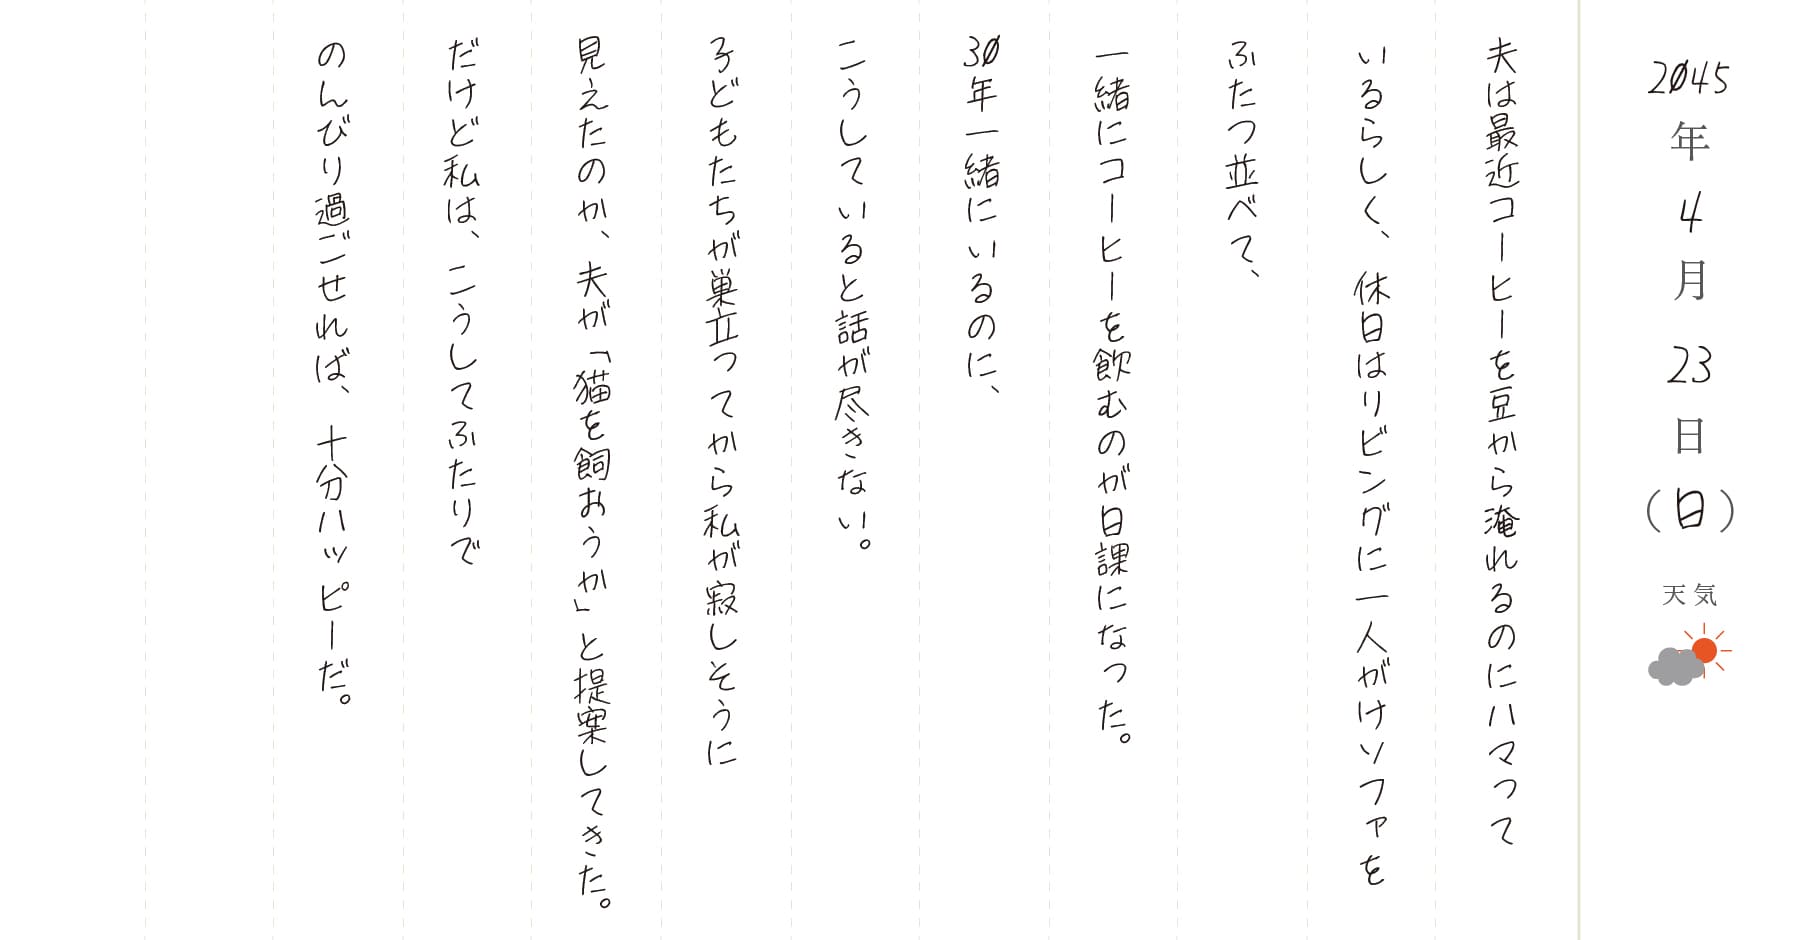 2045年4月23日(日)
天気
夫は最近コーヒーを豆から淹れるのにハマって
いるらしく、休日はリビングに一人がけソファを
ふたつ並べて、
一緒にコーヒーを飲むのが日課になった。
30年一緒にいるのに、
こうしていると話が尽きない。
子どもたちが巣立ってから私が寂しそうに
見えたのか、夫が「猫を飼おうか」と提案してきた。
だけど私は、こうしてふたりで
のんびり過ごせれば、十分ハッピーだ。